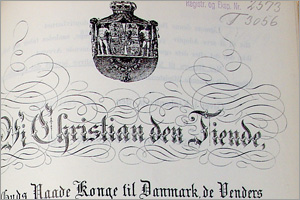 Registr. og Eksp. Nr. 2573
T 3056
Vi Christian den Tiende,
Guds Naade Konge til Danmark, de Venders